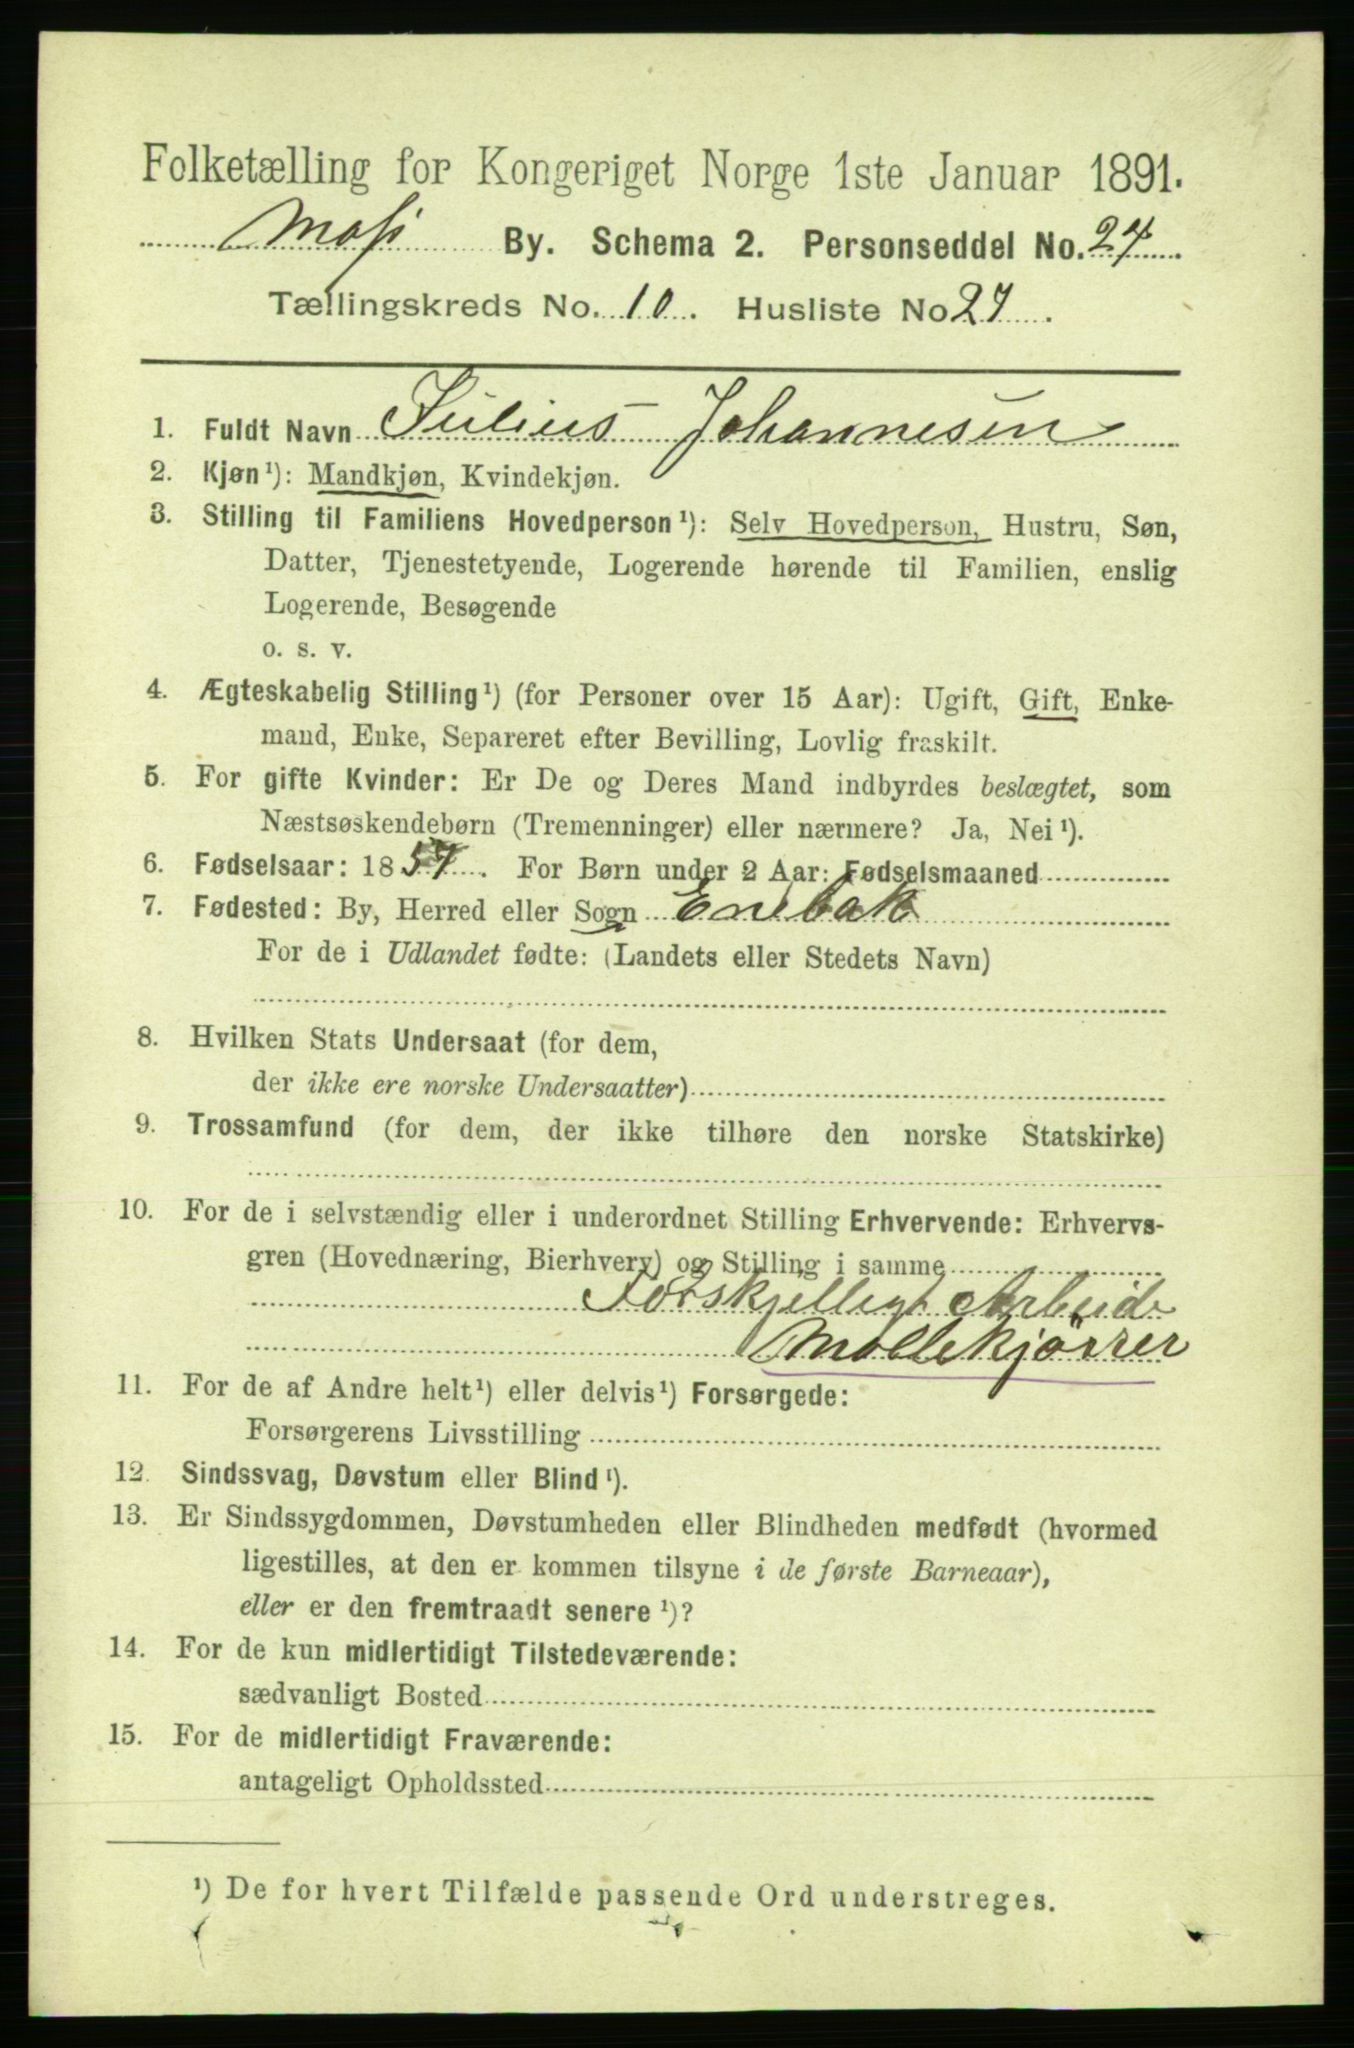 Folketælling for Kongeriget Norge 1ste Januar 1891.
Moss By. Schema 2. Personseddel No. 24
Tællingskreds No. 10. Husliste No 27.
1. Fuldt Navn Julius Johannesen
2. Kjøn¹): Mandkjøn, Kvindekjøn.
3. Stilling til Familiens Hovedperson¹): Selv Hovedperson, Hustru, Søn,
Datter, Tjenestetyende, Logerende hørende til Familien, enslig
Logerende, Besøgende
o. s. v.
4. Ægteskabelig Stilling¹) (for Personer over 15 Aar): Ugift, Gift, Enke-
mand, Enke, Separeret efter Bevilling, Lovlig fraskilt.
5. For gifte Kvinder: Er De og Deres Mand indbyrdes beslægtet, som
Næstsøskendebørn (Tremenninger) eller nærmere? Ja, Nei¹).
6. Fødselsaar: 1857. For Børn under 2 Aar: Fødselsmaaned
7. Fødested: By, Herred eller Sogn Enebak
For de i Udlandet fødte: (Landets eller Stedets Navn)
8. Hvilken Stats Undersaat (for dem,
der ikke ere norske Undersaatter)
9. Trossamfund (for dem, der ikke tilhøre den norske Statskirke)
10. For de i selvstændig eller i underordnet Stilling Erhvervende: Erhvervs-
gren (Hovednæring, Bierhverv) og Stilling i samme
Forskjelligt Arbeide
Møllekjörrer
11. For de af Andre helt¹) eller delvis¹) Forsørgede:
Forsørgerens Livsstilling
12. Sindssvag, Døvstum eller Blind¹).
13. Er Sindssygdommen, Døvstumheden eller Blindheden medfødt (hvormed
ligestilles, at den er kommen tilsyne i de første Barneaar),
eller er den fremtraadt senere¹)?
14. For de kun midlertidigt Tilstedeværende:
sædvanligt Bosted
15. For de midlertidigt Fraværende:
antageligt Opholdssted
¹) De for hvert Tilfælde passende Ord understreges.